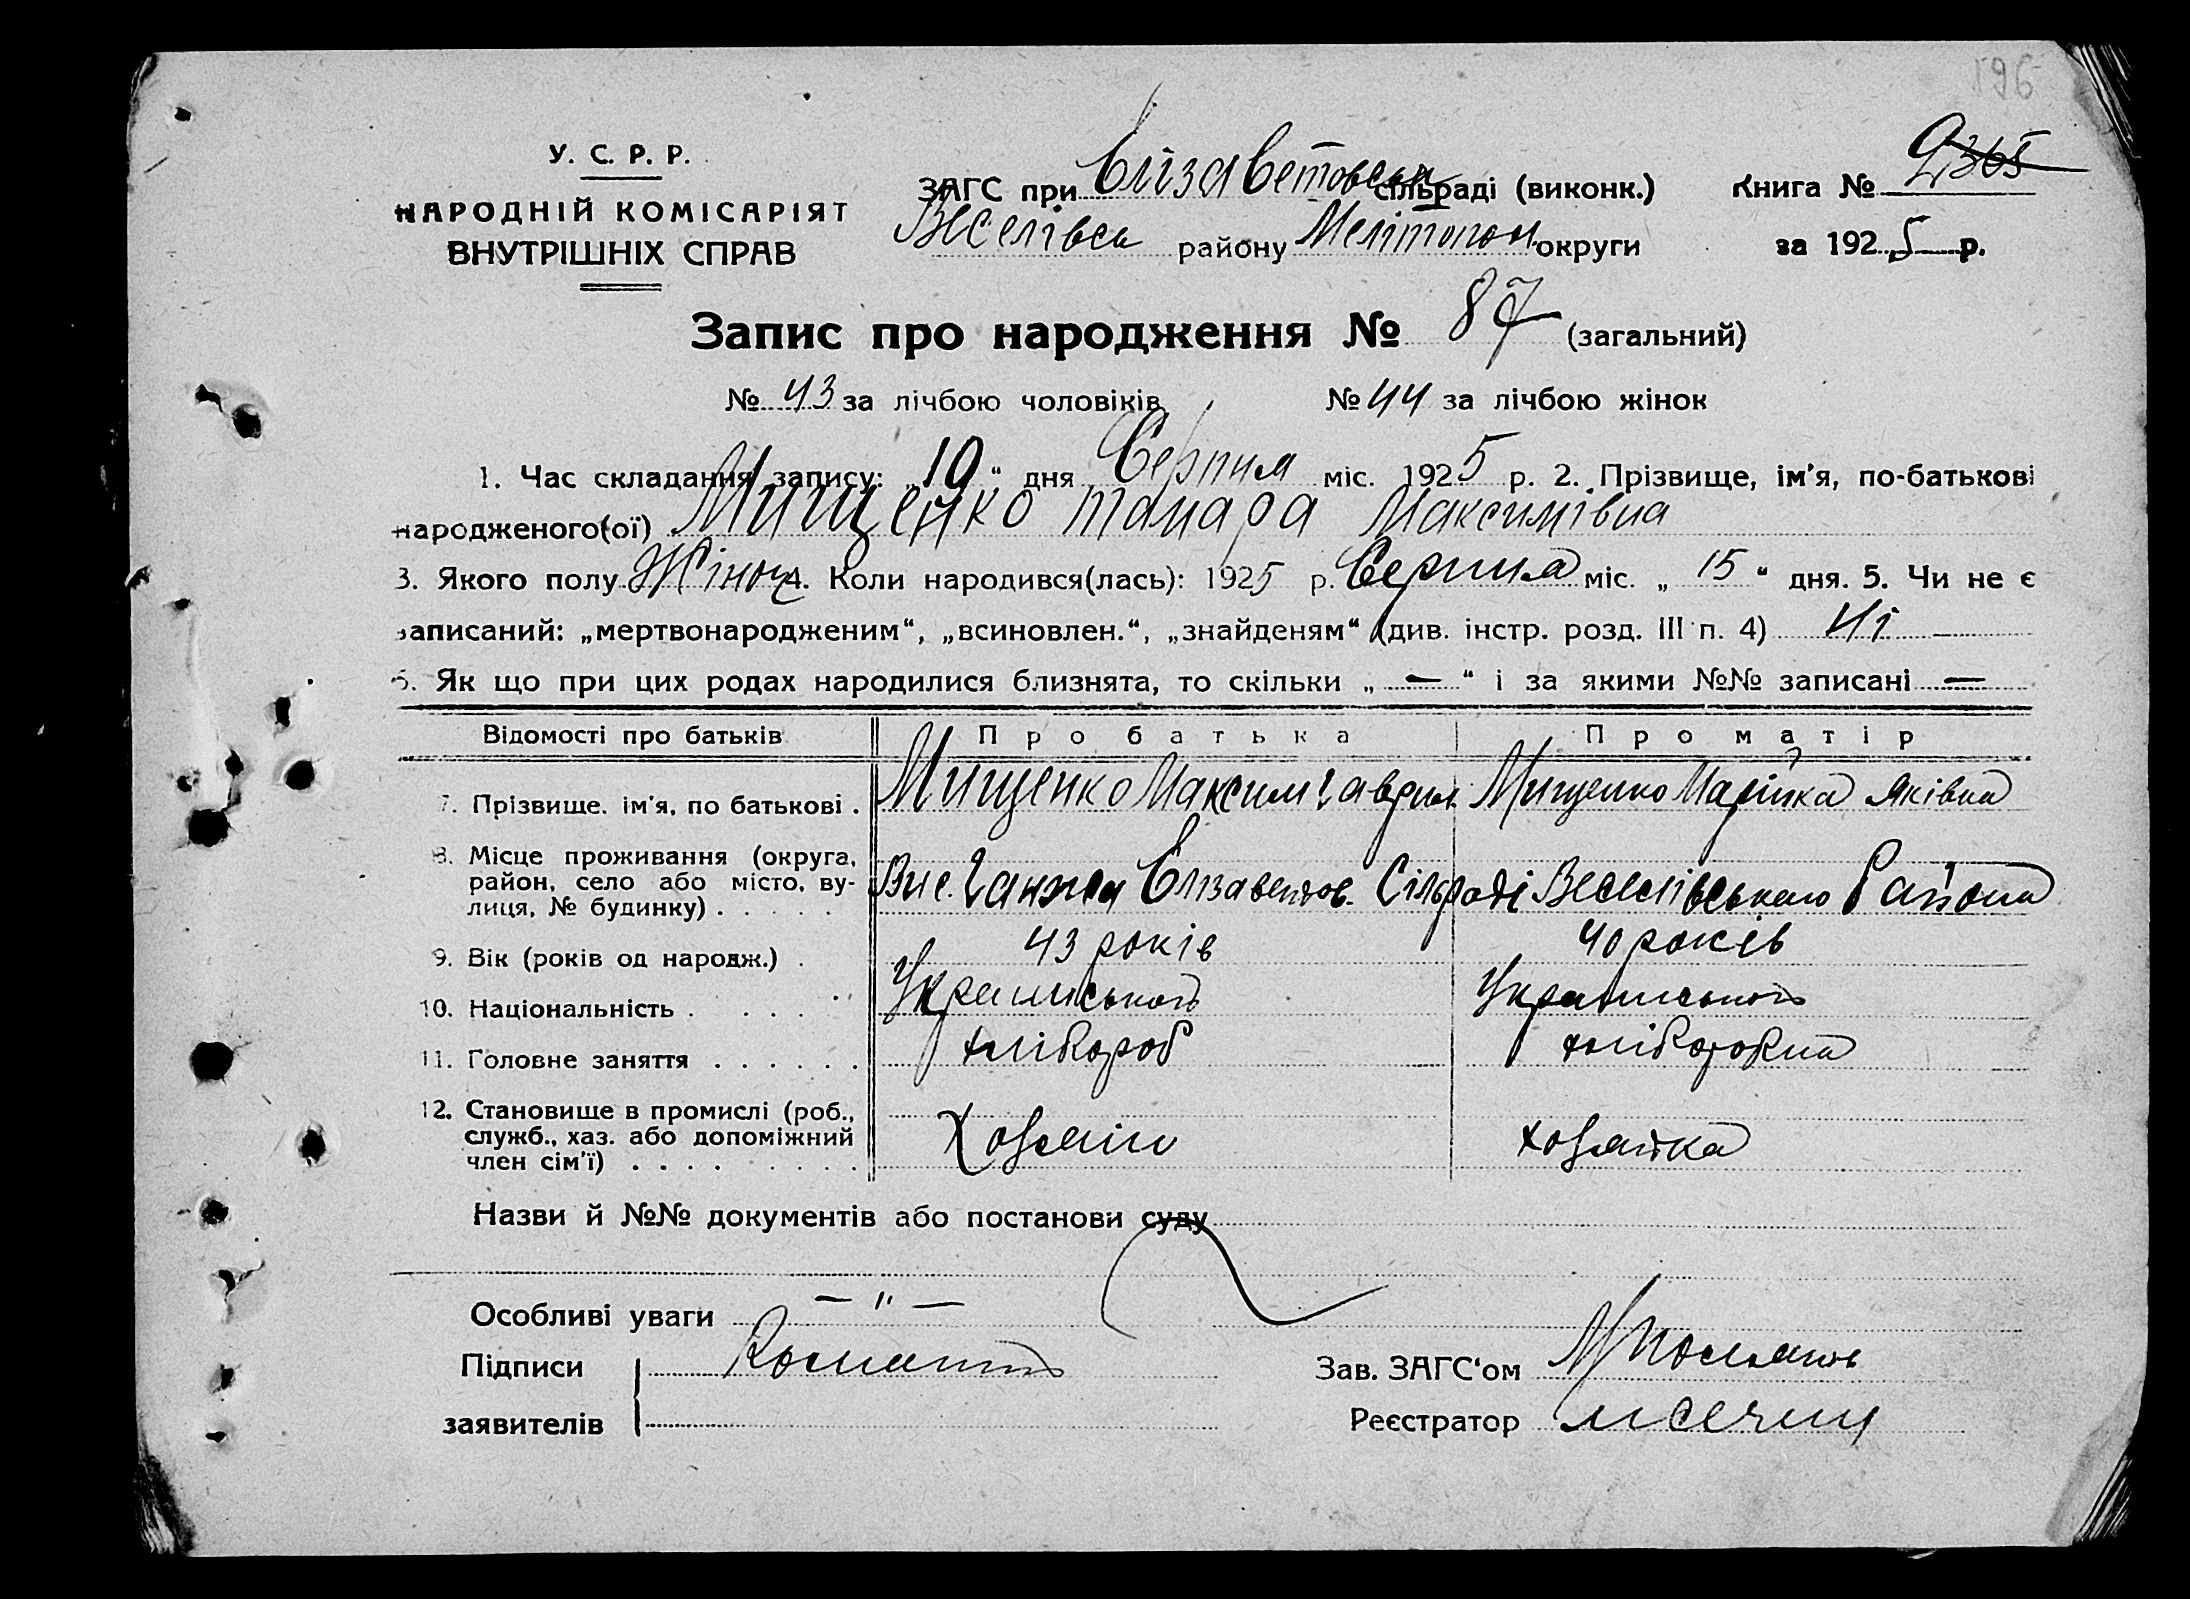 196
У. С. Р. Р.
НАРОДНІЙ КОМІСАРІЯТ
ВНУТРІШНІХ СПРАВ
ЗАГС при Єлізаветовськ сільраді (виконк.) Книга № 2365
Веселівськ району Мелітопол. округи за 1925 р.
Запис про народження № 87 (загальний)
№ 43 за лічбою чоловіків № 44 за лічбою жінок
1. Час складання запису: „19“ дня Серпня міс. 1925 р. 2. Прізвище, ім'я, по-батькові
народженого(ої) Мищенко Тамара Максимівна
3. Якого полу Жіноч 4. Коли народився(лась): 1925 р. Серпня міс. „15“ дня. 5. Чи не є
записаний: „мертвонародженим“, „всиновлен.“, „знайденям“ (див. інстр. розд. III п. 4) Ні
6. Як що при цих родах народилися близнята, то скільки „—“ і за якими №№ записані —
Відомості про батьків Про батька Про матір
7. Прізвище, ім'я, по батькові . Мищенко Максим Гаврил. Мищенко Марійка Яківна
8. Місце проживання (округа,
район, село або місто, ву-
лиця, № будинку) . . . . . Вис. Єлізаветов. Сільраді Веселівського Району
9. Вік (років од народж.) . 43 років 40 років
10. Національність . . . . . Українського Українського
11. Головне заняття . . . . . . хлібороб хліборобка
12. Становище в промислі (роб.,
служб., хаз. або допоміжний
член сім'ї) . . . . . . . . . Хозяїн хозяйка
Назви й №№ документів або постанови суду
Особливі уваги — „ —
Підписи Зав. ЗАГС'ом
заявителів Реєстратор